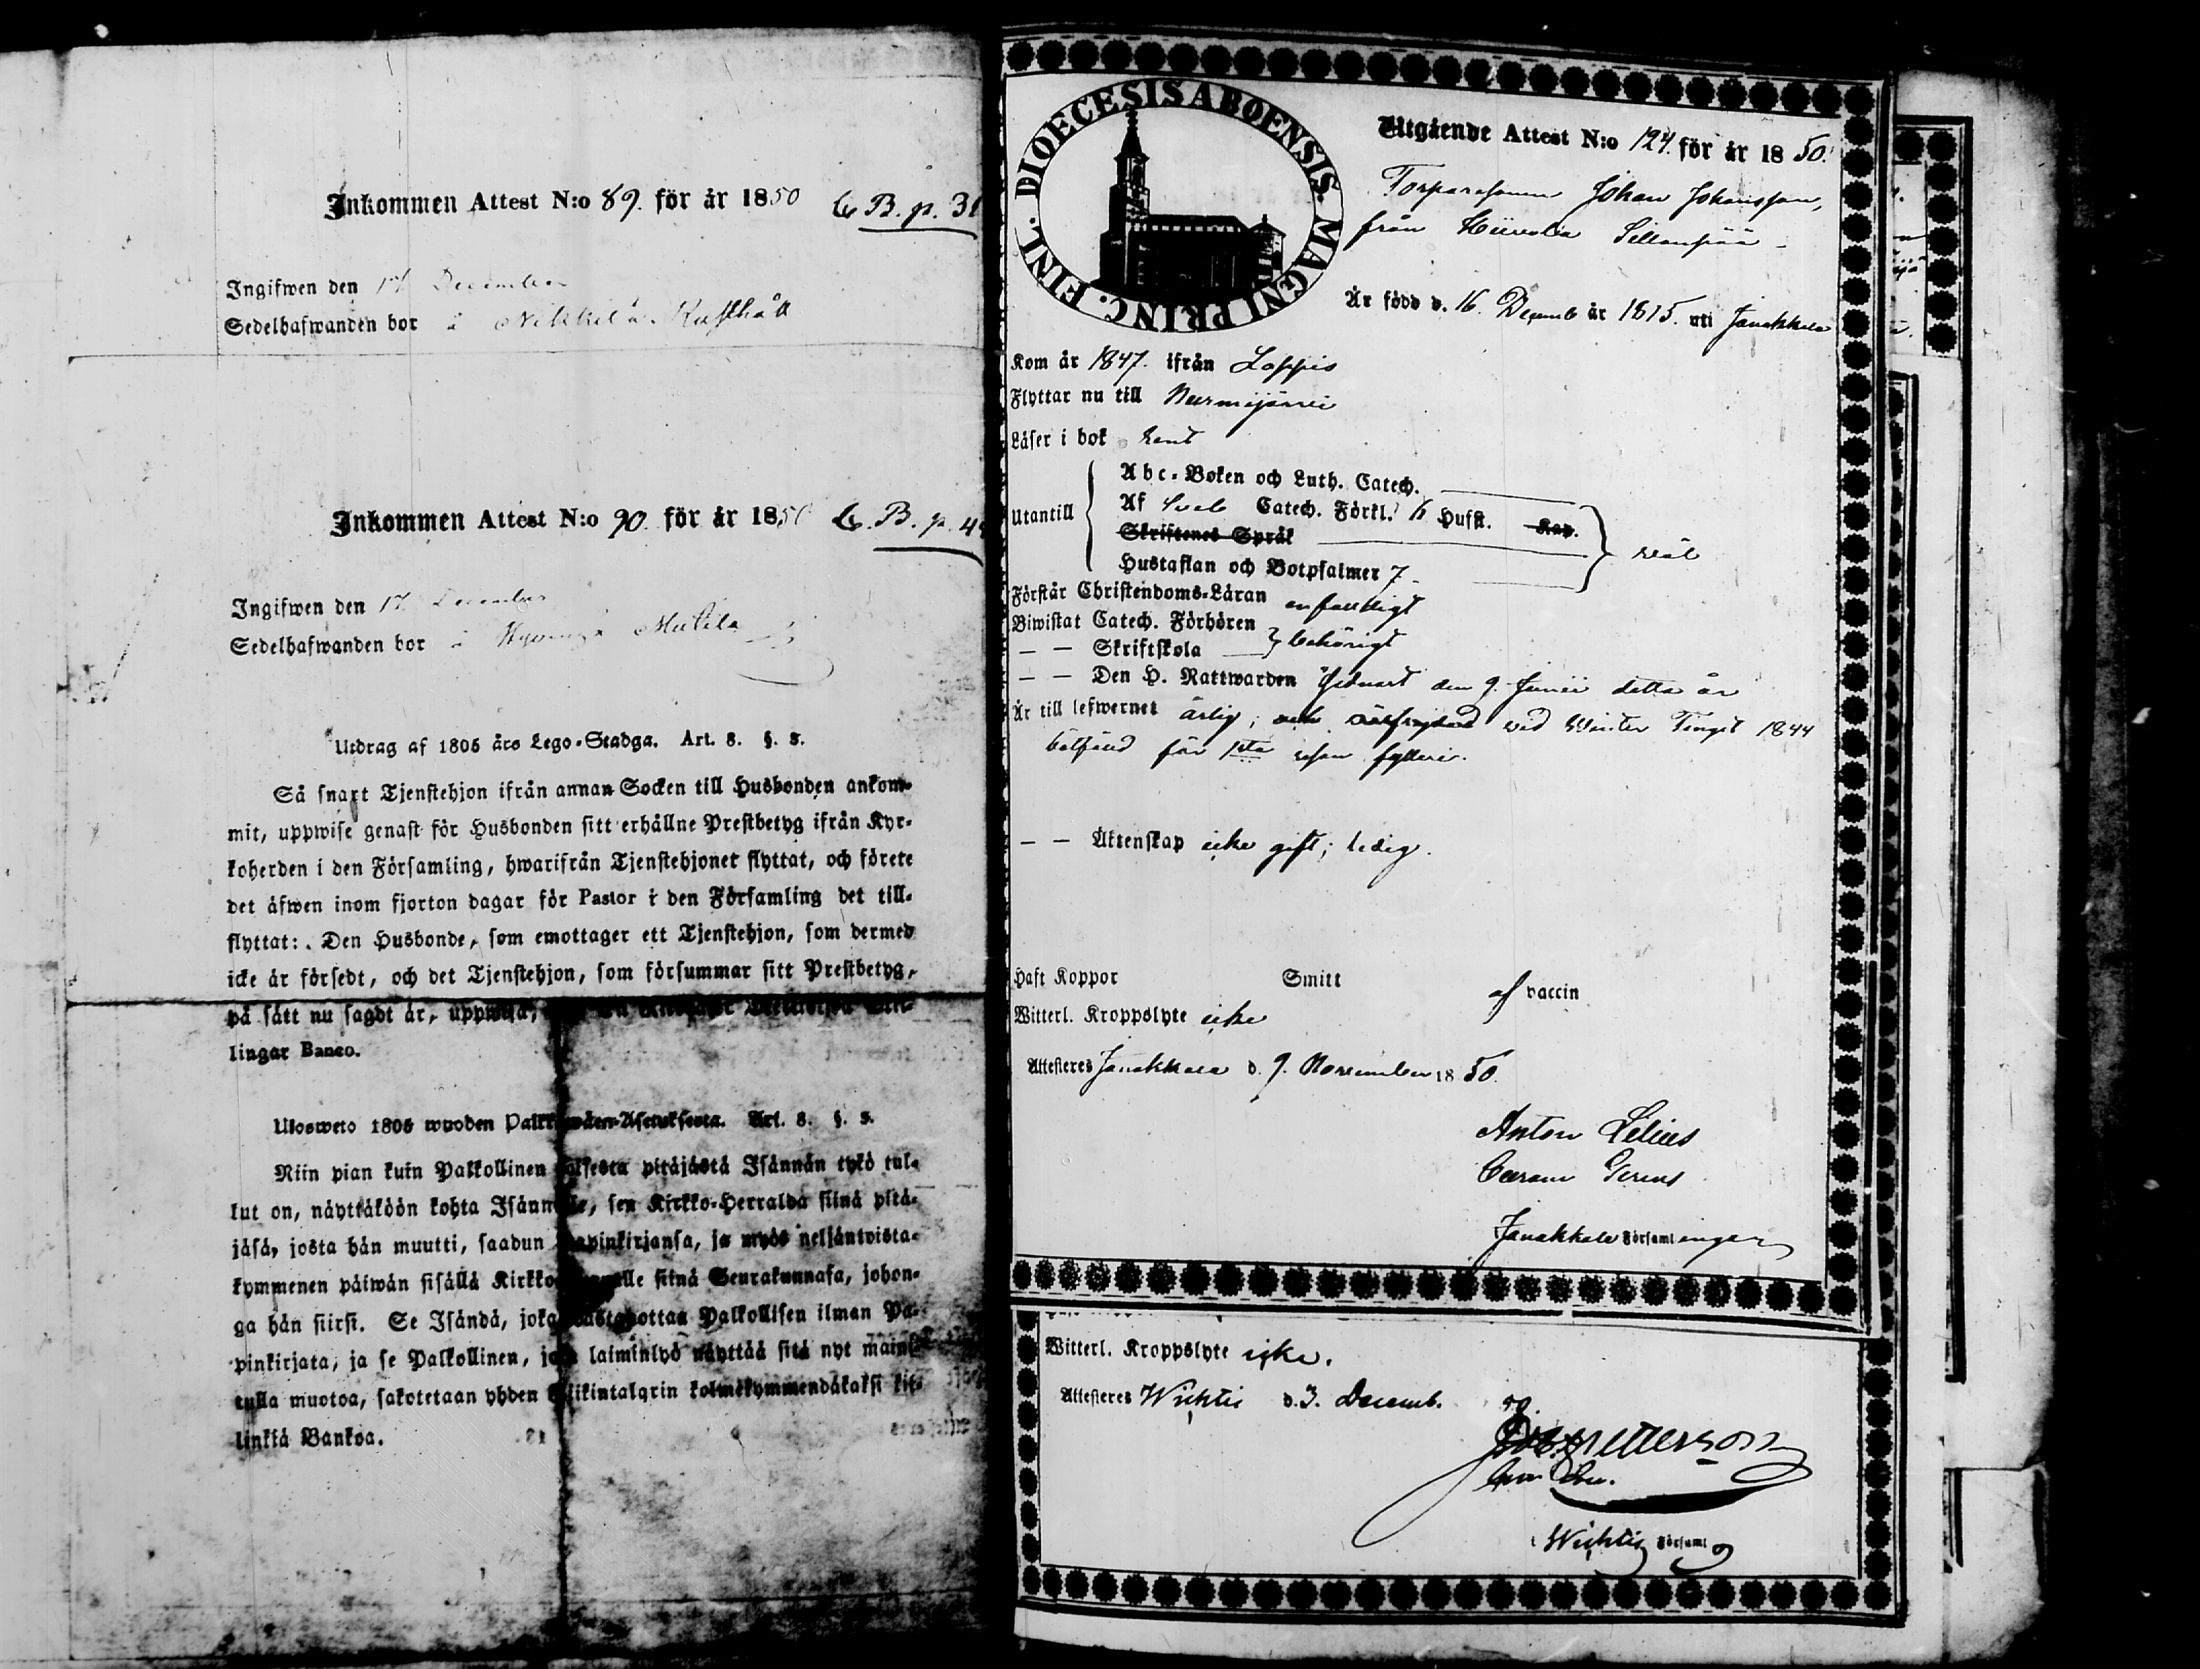 Inkommen Attest N:o 89. för år 1850
C. B. p. 31
Ingifwen den 17 December
Sedelhafwanden bor å Nikkilä Rusthåll
Inkommen Attest N:o 90. för år 1850
C. B. p. 44
Ingifwen den 17 December
Sedelhafwanden bor å Hyvingä
Utdrag af 1805 års Lego-Stadga. Art. 8. §. 3.
Så snart Tjenstehjon ifrån annan Socken till Husbonden ankom-
mit, uppwise genast för Husbonden sitt erhållne Prestbetyg ifrån Kyr-
koherden i den Församling, hwarifrån Tjenstehjonet flyttat, och förete
det äfwen inom fjorton dagar för Pastor i den Församling det till-
flyttat: Den Husbonde, som emottager ett Tjenstehjon, som dermed
icke är försedt, och det Tjenstehjon, som försummar sitt Prestbetyg,
på sätt nu sagdt är, uppwisa,
lingar Banco.
Ulosweto 1805 wuoden Palkkawäen-Asetuksesta. Art. 8. §. 3.
Niin pian kuin Palkollinen toisesta pitäjästä Isännän tykö tul-
lut on, näyttäköön kohta Isännälle, sen Kirkko-Herralda siinä pitä-
jäsä, josta hän muutti, saadun Papinkirjansa, ja myös neljäntoista-
kymmenen päiwän sisällä Kirkko-Herralle siinä Seurakunnasa, johon-
ga hän siirsi. Se Isändä, joka wastaanottaa Palkollisen ilman Pa-
pinkirjata, ja se Palkollinen, joka laiminlyö näyttää sitä nyt maini-
tulla muotoa, sakotetaan yhden Riikintalarin kolmekymmendäkaksi kil-
linkiä Bankoa.
DIOECESIS ABOENSIS. MAGNI PRINC. FINL.
Utgående Attest N:o 124. för år 1850.
Torparesonen Johan Johansson,
från Hiivola Sillanpää
Är född d. 16. Decemb år 1815. uti Janakkala
Kom år 1847. ifrån Loppis
Flyttar nu till Nurmijärvi
Läser i bok rent
Utantill
Abc-Boken och Luth. Catech.
Af Sveb Catech. Förkl. 6 Hufst. Kap.
Skriftenes Språk
Hustaflan och Botpsalmer 7
Förstår Christendoms-Läran enfaldigt
Biwistat Catech. Förhören
— — Skriftskola behörigt
— — Den H. Nattwarden sednast den 9. Junii detta år
Är till lefwernet ärlig, och wid Winter Tinget 1844
bötfäld för 1sta resan fylleri.
— — Äktenskap icke gift; ledig.
Haft Koppor Smitt af vaccin
Witterl. Kroppslyte icke
Attesteres Janakkala d. 9. November 1850.
Anton Lilius
Janakkala Församlingar
Witterl. Kroppslyte icke.
Attesteres Wichtis d. 3. Decemb. 50.
Wichtis Församl